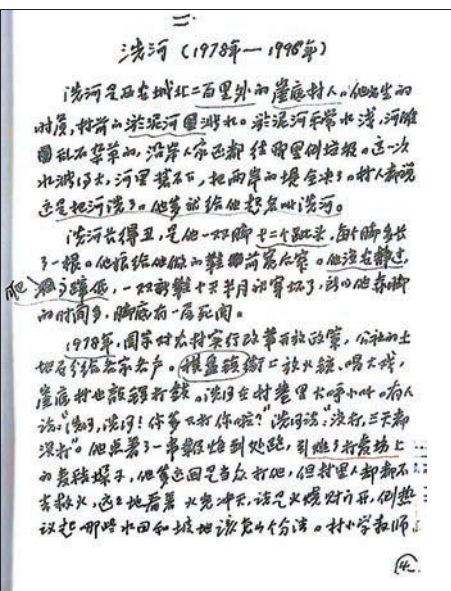 二.
洗河（1978年—1998年）
洗河是西安城北二百里外的崖底村人。他出生的
时候，村前的淤泥河涨水。淤泥河平常水浅，河滩
乱石杂草的，沿岸人家还都往那里倒垃圾。这一次
水涨得大，河里装不下，把两岸的堤全冲了。村人都说
这是把河洗了。他爹就给他起名叫洗河。
洗河长得丑，是他一双脚十二个趾头，每个脚多长
了一根。他娘给他做的鞋前宽后窄。他没去鞋过，
一双新鞋十天半月就穿坏了，所以他赤脚
的时间多，脚底有一层死肉。
1978年，国家对农村实行改革开放政策，公社的土
地在分给各家各户。棋盘镇街上放火铳，唱大戏，
崖底村也敲锣打鼓。洗河在村巷里大呼小叫。有人
说：“洗河，洗河！你爹又打你啦？”洗河说：“没打，三天都
没打”。他点着了一串鞭炮到处跑，引燃了打麦场上
的麦秸垛子，他爹这回是当众打他，但村里人却都不
去救火，还在地看着火光冲天，说是火烧财门开，倒热
议起哪些水田和坡地该怎么个分法。村小学教师
4.